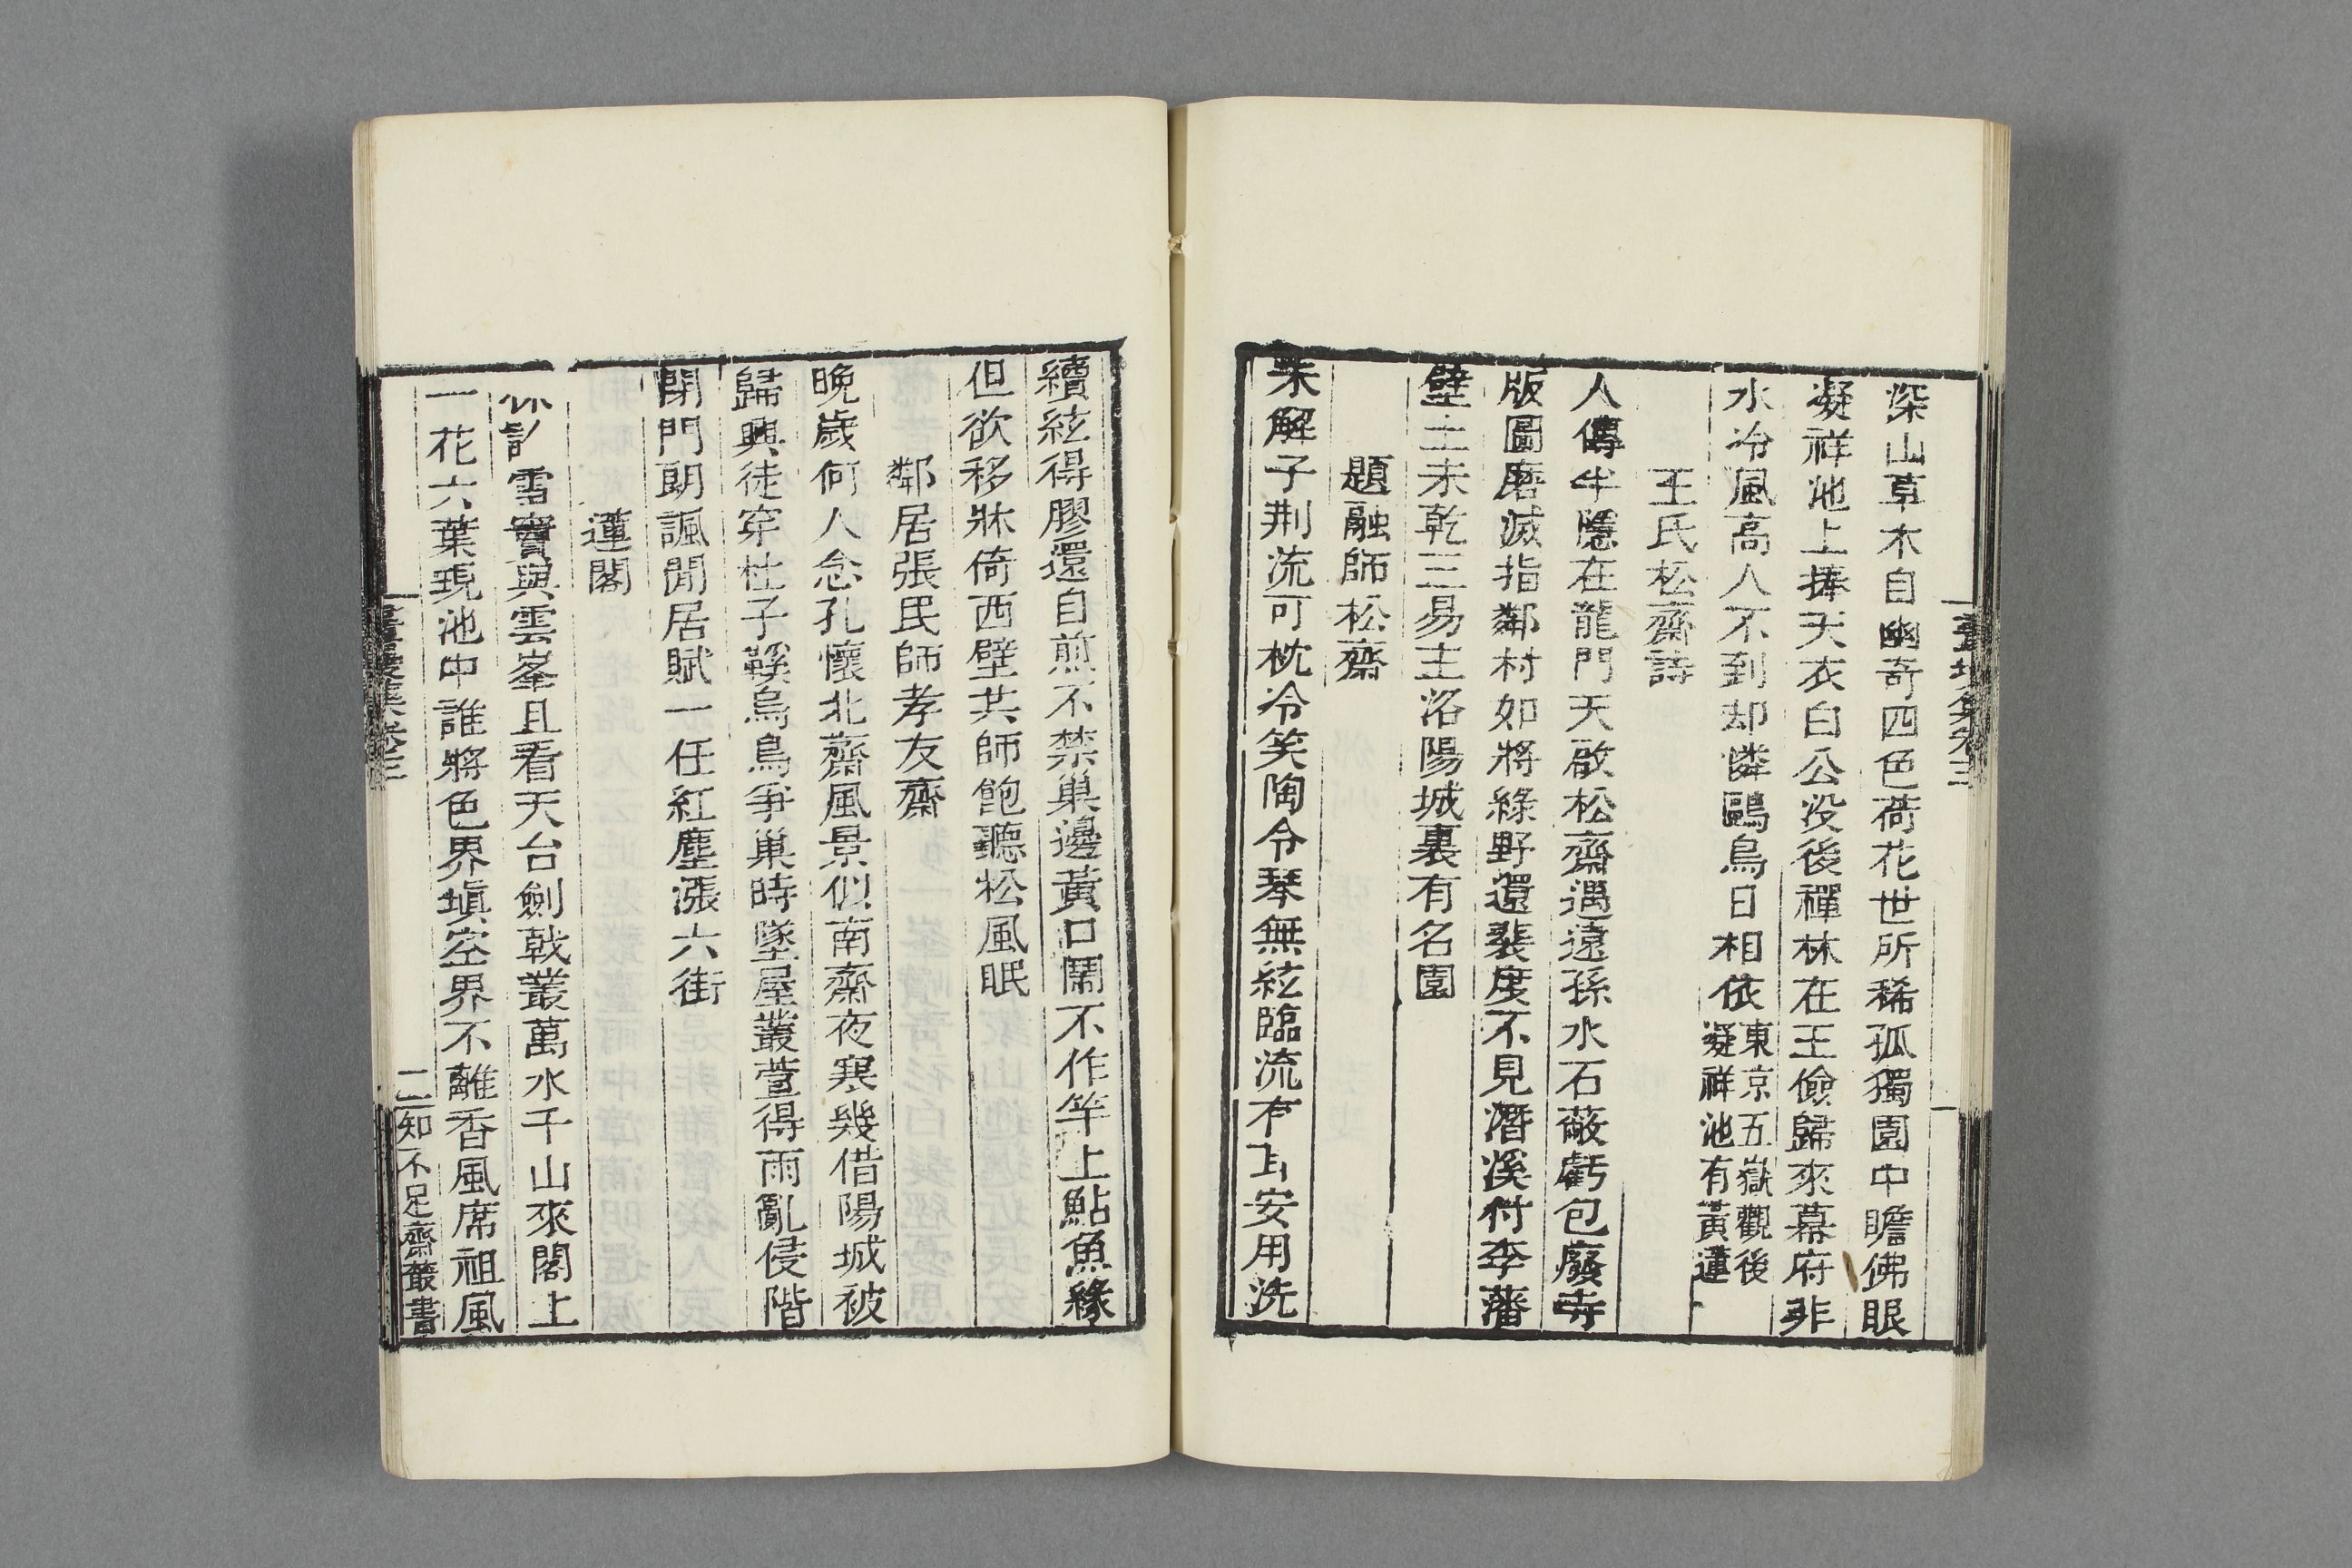 深山草木自幽奇四色荷花世所稀孤獨園中瞻佛眼
凝祥池上捧天衣白公没後禪林在王儉歸來幕府非
水冷風高人不到却憐鷗鳥日相依東京五嶽觀後凝祥池有黃蓮
王氏松齋詩
人傳半隱在龍門天啟松齋遇遠孫水石蔽虧包廢寺
版圖磨滅指鄰村如將綠野還裴度不見潛溪付李藩
壁土未乾三易主洛陽城裏有名園
題融師松齋
未解子荆流可枕冷笑陶令琴無絃臨流有耳安用洗
續絃得膠還自煎不禁巢邊黃口鬧不作竿上鮎魚緣
但欲移牀倚西壁共師飽聽松風眠
鄰居張民師孝友齋
晚歲何人念孔懷北齋風景似南齋夜寒幾借陽城被
歸興徒穿杜子鞵烏鳥爭巢時墜屋叢萱得雨亂侵階
閉門朗諷閒居賦一任紅塵漲六街
蓮閣
雪竇與雲峯且看天台劍戟叢萬水千山來閣上
一花六葉現池中誰將色界塡空界不離香風席祖風
集卷三
二
知不足齋叢書